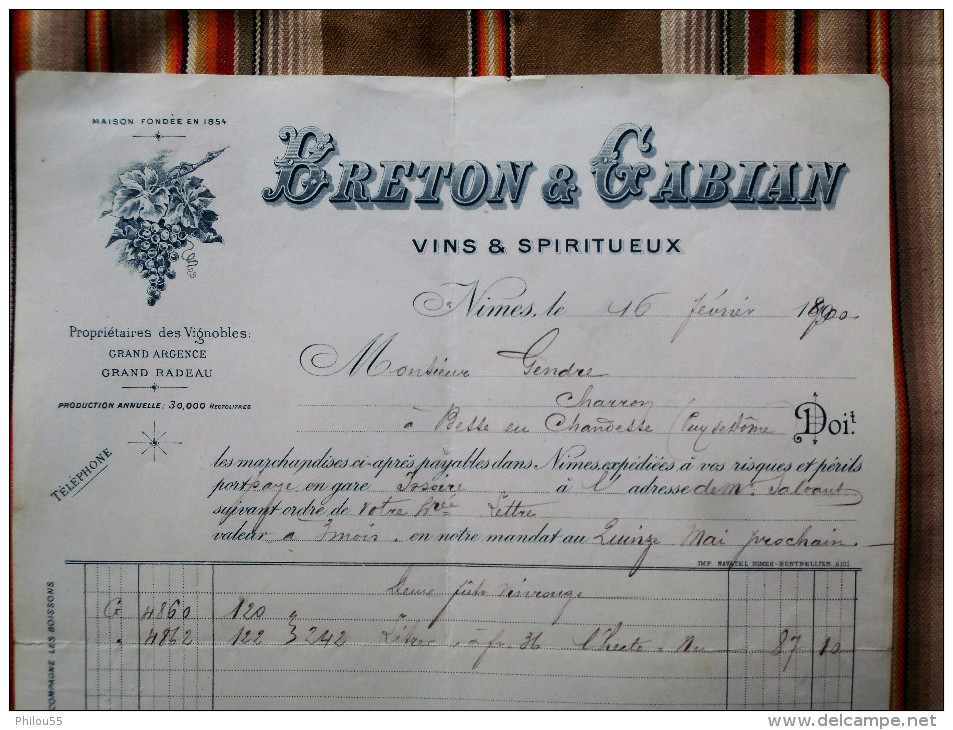 MAISON FONDÉE EN 1854
BRETON & GABIAN
VINS & SPIRITUEUX
Nimes, le 16 février 1900
Propriétaires des Vignobles:
GRAND ARGENCE
GRAND RADEAU
PRODUCTION ANNUELLE: 30,000 HECTOLITRES
TÉLÉPHONE
Monsieur Gendre
Charron
à Besse en Chandesse (Puy de Dôme) Doit
les marchandises ci-après payables dans Nimes, expédiées à vos risques et périls
port paye en gare Issoire à l'adresse de Mr.
suivant ordre de votre Lettre
valeur a 3 mois, en notre mandat au Quinze Mai prochain.
IMP. NAVATEL NIMES-MONTPELLIER
fûts Vin rouge
G 4860 120 "
" 4862 122 } 242 Litres à fr. 36 l'hecto. Nu 87 10
COMPAGNE LES BOISSONS
Philou55
www.delcampe.net